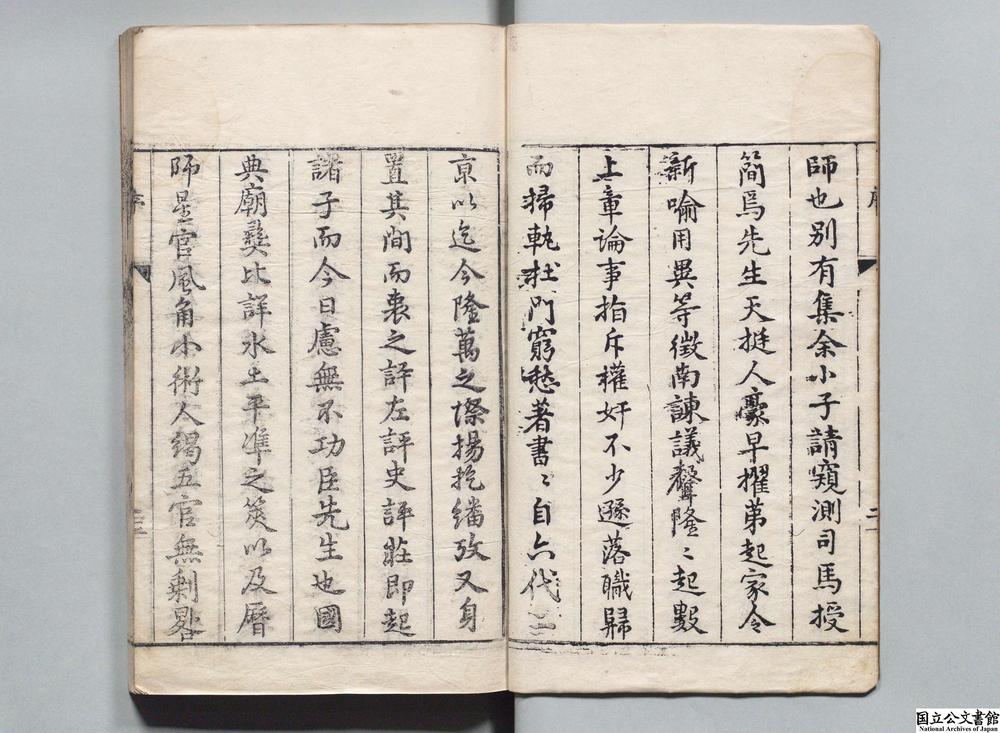 師也別有集余小子請窺測司馬授
簡焉先生天挺人豪早擢第起家令
新喻用異等徵南諫議聲隆〻起數
上章論事指斥權奸不少遜落職歸
而掃軌杜門窮愁著書〻自六代三
京以迄今隆萬之際揚扢繙攷又身
置其間而衷之評左評史評莊即起
諸子而今日慮無不功臣先生也國
典廟彝比詳水土平準之筴以及曆
師星官風角小術人竭五官無剩畧
序
二
序
三
国立公文書館
National Archives of Japan